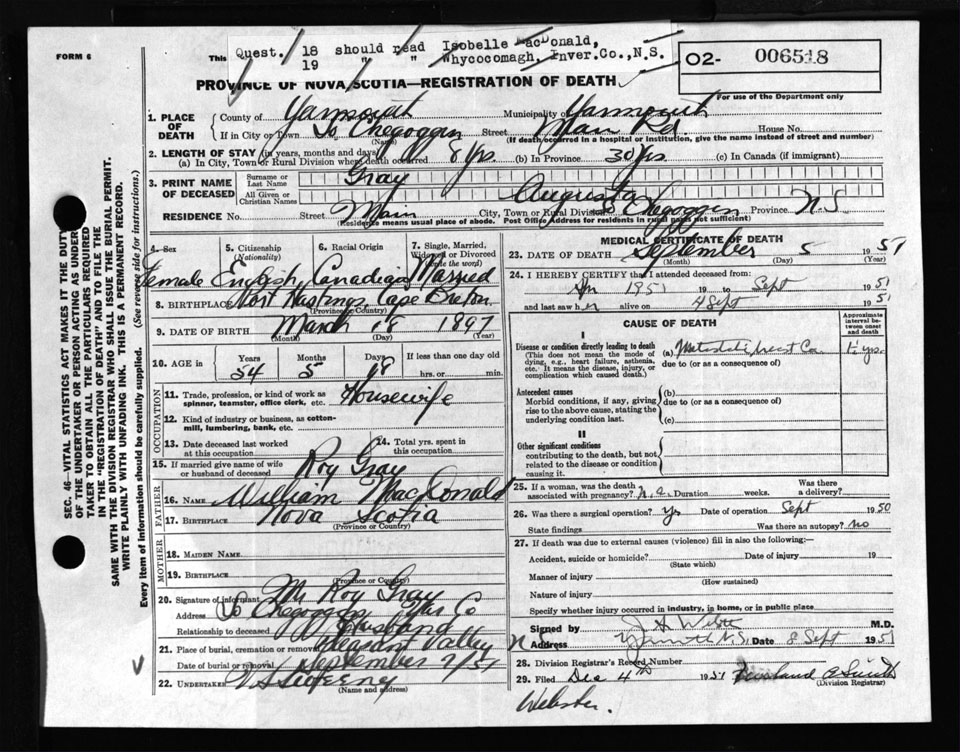 Quest. 18 should read Isobelle MacDonald,
This 19 " " Whycocomagh, Inver.Co., N.S.
FORM 6
O2- 006518
For use of the Department only
PROVINCE OF NOVA SCOTIA—REGISTRATION OF DEATH
SEC. 46—VITAL STATISTICS ACT MAKES IT THE DUTY
OF THE UNDERTAKER OR PERSON ACTING AS UNDER-
TAKER TO OBTAIN ALL THE PARTICULARS REQUIRED
IN THE "REGISTRATION OF DEATH" AND TO FILE THE
SAME WITH THE DIVISION REGISTRAR WHO SHALL ISSUE THE BURIAL PERMIT.
WRITE PLAINLY WITH UNFADING INK. THIS IS A PERMANENT RECORD.
Every item of information should be carefully supplied. (See reverse side for instructions.)
1. PLACE OF DEATH County of Yarmouth Municipality Yarmouth
If in City or Town So Chegoggin Street Main Rd. House No.
(Name) (If death occurred in a hospital or institution, give the name instead of street and number)
2. LENGTH OF STAY (in years, months and days)
(a) In City, Town or Rural Division where death occurred 8 Yrs. (b) In Province 30 Yrs (c) In Canada (if immigrant)
3. PRINT NAME OF DECEASED Surname or Last Name Gray
All Given or Christian Names Augusta
RESIDENCE No. Street Main City, Town or Rural Division So Chegoggin Province N.S.
(Residence means usual place of abode. Post Office Address for residents in rural parts not sufficient)
4. Sex 5. Citizenship (Nationality) 6. Racial Origin 7. Single, Married, Widowed or Divorced (write the word)
Female English Canadian Married
8. BIRTHPLACE Port Hastings, Cape Breton
(Province or Country)
9. DATE OF BIRTH March 18 1897
(Month) (Day) (Year)
10. AGE in Years Months Days If less than one day old
54 5 18 hrs. or min.
OCCUPATION
11. Trade, profession, or kind of work as spinner, teamster, office clerk, etc. Housewife
12. Kind of industry or business, as cotton-mill, lumbering, bank, etc.
13. Date deceased last worked at this occupation 14. Total yrs. spent in this occupation
15. If married give name of wife or husband of deceased Roy Gray
FATHER
16. NAME William MacDonald
17. BIRTHPLACE Nova Scotia
(Province or Country)
MOTHER
18. MAIDEN NAME
19. BIRTHPLACE
(Province or Country)
20. Signature of informant Mr Roy Gray
Address So Chegoggin Yar Co
Relationship to deceased Husband
21. Place of burial, cremation or removal Valley
Date of burial or removal September 7/51
22. Undertaker Sweeny
(Name and address)
MEDICAL CERTIFICATE OF DEATH
23. DATE OF DEATH September 5 1951
(Month) (Day) (Year)
24. I HEREBY CERTIFY that I attended deceased from:
1951 to Sept 1951
and last saw her alive on 4 Sept 1951
CAUSE OF DEATH
Approximate interval between onset and death
I
Disease or condition directly leading to death (a) 1½ yrs.
(This does not mean the mode of dying, e.g., heart failure, asthenia, etc. It means the disease, injury, or complication which caused death.)
due to (or as a consequence of)
Antecedent causes
Morbid conditions, if any, giving rise to the above cause, stating the underlying condition last.
(b)
due to (or as a consequence of)
(c)
II
Other significant conditions
contributing to the death, but not related to the disease or condition causing it.
25. If a woman, was the death associated with pregnancy? no. Duration weeks. Was there a delivery?
26. Was there a surgical operation? yes Date of operation Sept 1950
State findings Was there an autopsy? no
27. If death was due to external causes (violence) fill in also the following:—
Accident, suicide or homicide? Date of injury 19
(State which)
Manner of injury
(How sustained)
Nature of injury
Specify whether injury occurred in industry, in home, or in public place
Signed by M.D.
Address Yarmouth N.S. Date 8 Sept 1951
28. Division Registrar's Record Number
29. Filed Dec 4th 1951 Smith
(Division Registrar)
Webster.